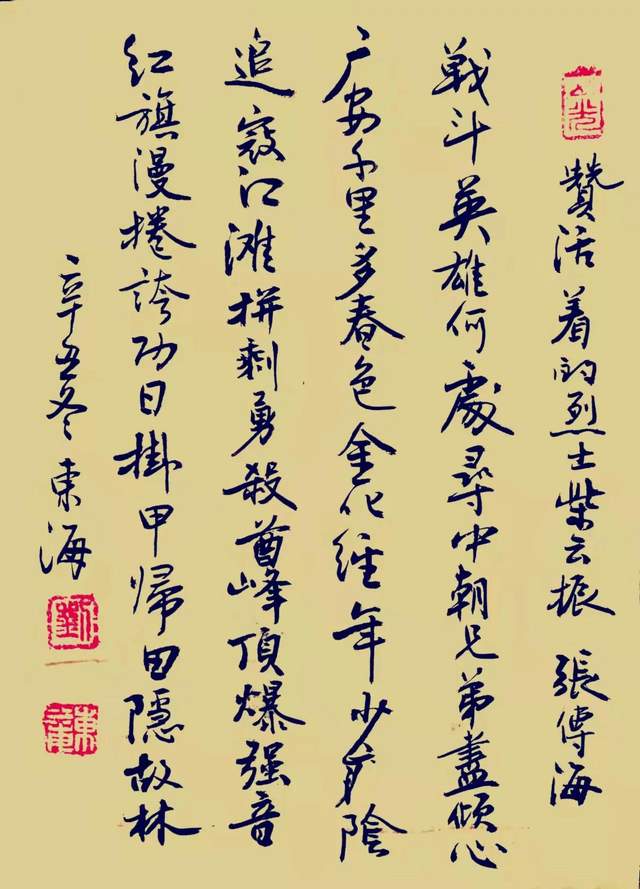 贊活着的烈士柴云振 張傳海
戦斗英雄何處尋中朝兄弟盡傾心
广安千里多春色金化經年少陰
追寇江滩拼剩勇殺酋峰頂爆强音
红旗漫捲誇功日掛甲帰田隱故林
辛丑冬東海
劉